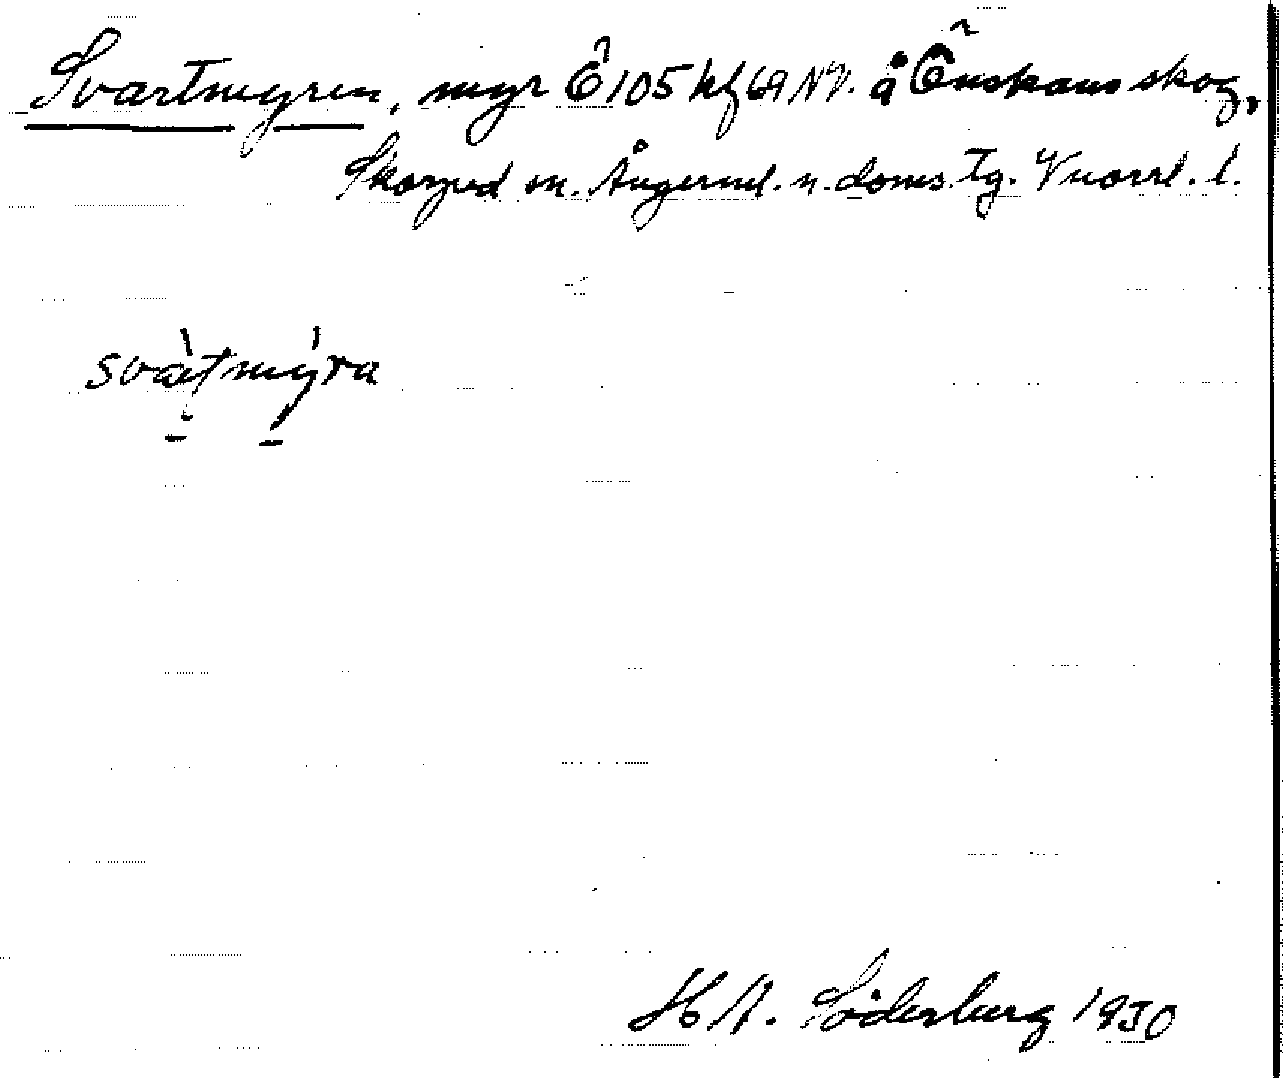 Svartmyren, myr Ö 105 hf 69 NV. å Önskans skog,
Skorped sn. Ångerml. n. doms. Tg. Vnorrl. l.
svàtmýra
H A. Söderberg 1930